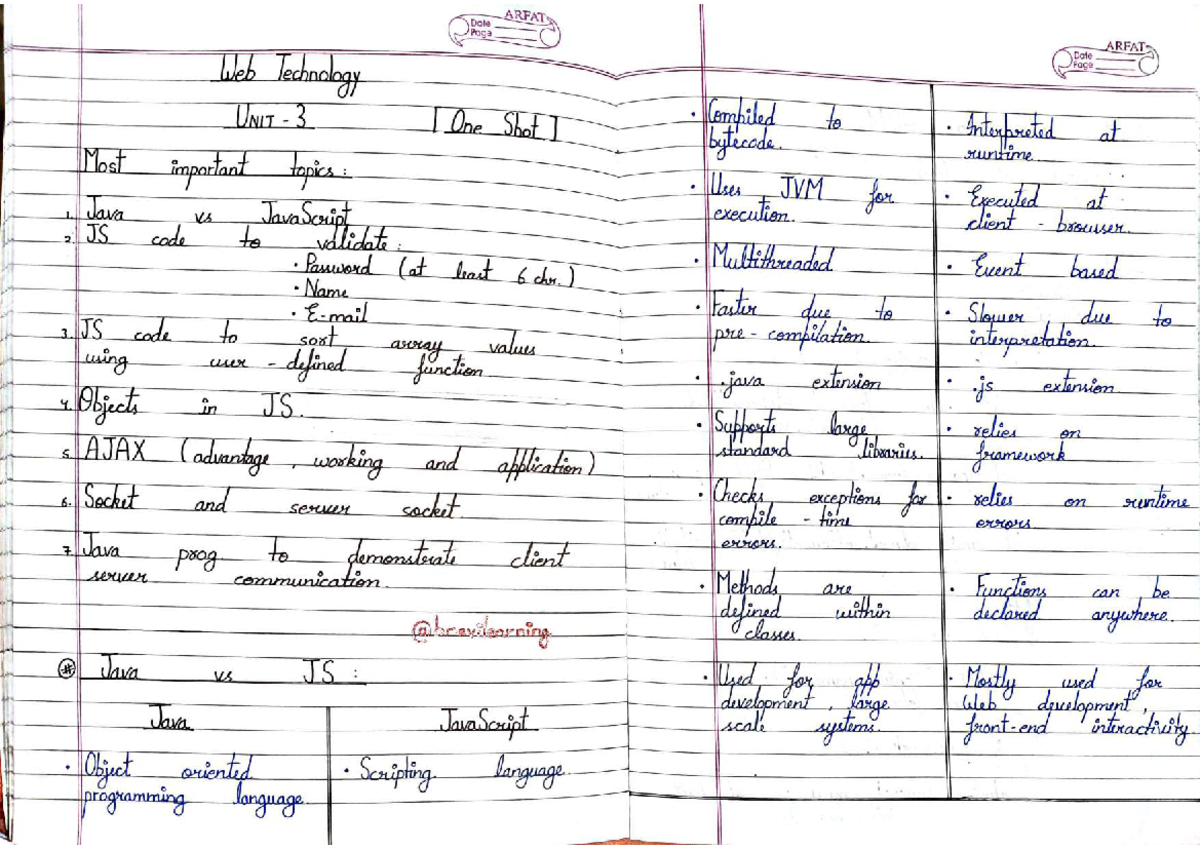 ARFAT
Date
Page
Web Technology
UNIT - 3 [ One Shot ]
Most important topics :
1. Java vs JavaScript
2. JS code to validate :
• Password (at least 6 chr.)
• Name
• E-mail
3. JS code to sort array values
using user - defined function
4. Objects in JS.
5. AJAX (advantage, working and application)
6. Socket and server socket
7. Java prog to demonstrate client
server communication.
# Java vs JS :
Java JavaScript
• Object oriented • Scripting language
programming language.
ARFAT
Date
Page
• Compiled to • Interpreted at
bytecode. runtime.
• Uses JVM for • Executed at
execution. client - browser.
• Multithreaded • Event based
• Faster due to • Slower due to
pre - compilation. interpretation.
• .java extension • .js extension
• Supports large • relies on
standard libraries. framework
• Checks exceptions for • relies on runtime
compile - time errors
errors.
• Methods are • Functions can be
defined within declared anywhere.
classes.
• Used for app • Mostly used for
development, large Web development,
scale systems. front-end interactivity